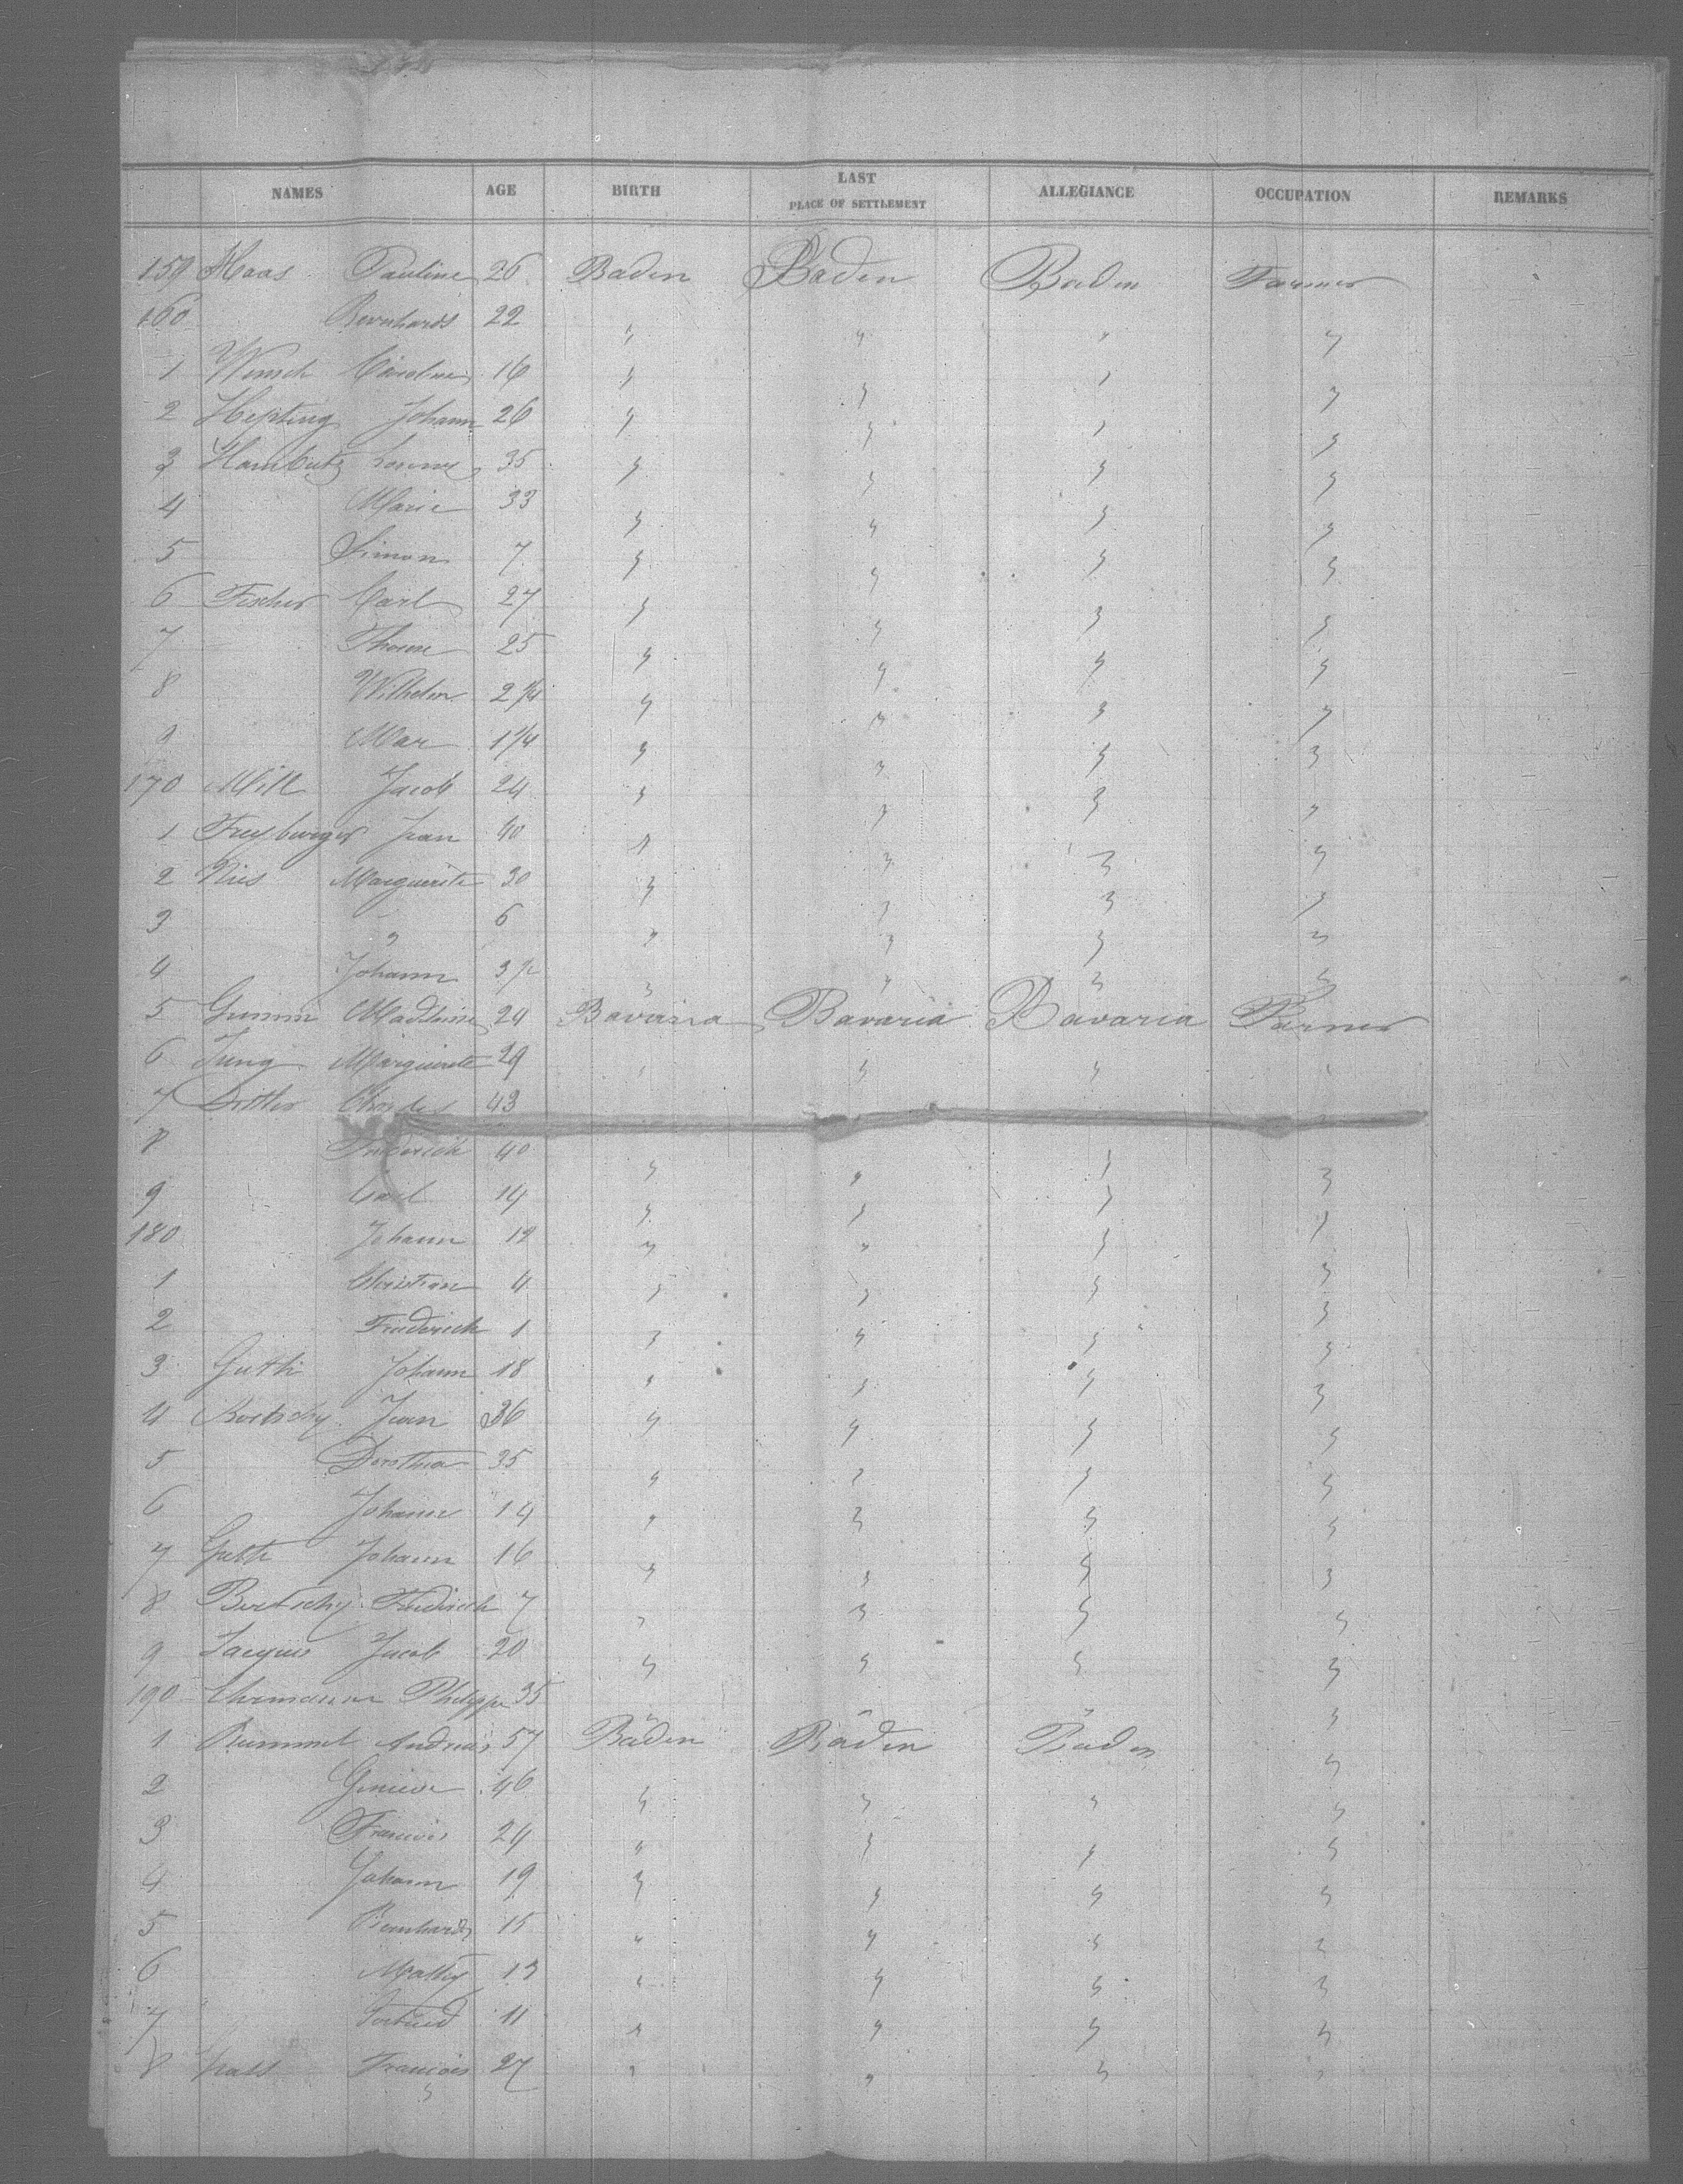 NAMES AGE BIRTH LAST PLACE OF SETTLEMENT ALLEGIANCE OCCUPATION REMARKS
159 Haas Pauline 26 Baden Baden Baden Farmer
160 Bernhard 22 " " " "
1 Wunsch Caroline 16 " " " "
2 Hepting Johann 26 " " " "
3 Hambutz 35 " " " "
4 Marie 33 " " " "
5 Simon 7 " " " "
6 Fischer Carl 27 " " " "
7 25 " " " "
8 Wilhelm 2 " " " "
9 Max 1 1/4 " " " "
170 Mill Jacob 24 " " " "
1 Freyburger Jean 40 " " " "
2 Nies Marguerite 30 " " " "
3 " 6 " " " "
4 Johann 3 " " " "
5 Gumm Madleine 24 Bavaria Bavaria Bavaria Farmer
6 Jung Marguerite 29 " " " "
7 Charles 43
8 Friederich 40 " " " "
9 Carl 14 " " " "
180 Johann 12 " " " "
1 Christian 4 " " " "
2 Friederich 1 " " " "
3 Guth Johann 18 " " " "
4 Bertschy Jean 36 " " " "
5 Dorothea 35 " " " "
6 Johann 14 " " " "
7 Guth Johann 16 " " " "
8 Bertschy Friedrich 7 " " " "
9 Jacques Jacob 20 " " " "
190 Philippe 35 " " " "
1 Rummel Andreas 57 Baden Baden Baden "
2 46 " " " "
3 Francois 24 " " " "
4 Johann 19 " " " "
5 Bernhard 15 " " " "
6 13 " " " "
7 11 " " " "
8 François 27 " " " "